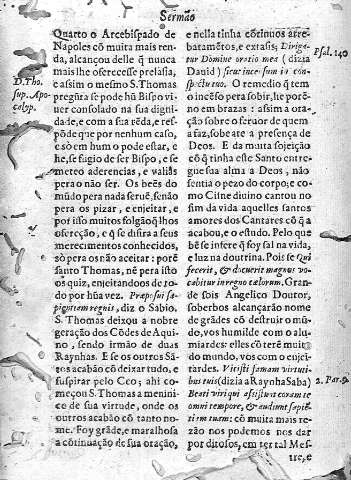 Sermão
Quarto o Arcebispado de
Napoles cõ muita mais ren-
da, alcançou delle q̃ nunca
mais lhe oferecesse prelasia,
a essim o mesmo S. Thomas
pregũta se pode hũ Bispo vi-
uer consolado na sua digni-
dade, e com a sua rẽda, e res-
põde que por nenhum caso,
e só em hum o pode estar, e
he, se fugio de ser Bispo, e se
meteo aderencias, e walias
pera o não ser. Os beẽs do
mũdo pera nada serue, senão
pera os pizar, e enjeitar, e
por isso muitos folgão q̃ lhos
ofereção, e q̃ se disira a seus
merecimentos conhecidos,
só pera os não aceitar: porẽ
santo Thomas, nẽ pera isto
os quiz, enjeitandoos de ro-
do por hũa vez. Præposui sa-
pientiam regnis, diz o Sabio.
S. Thomas deixou a nobre
geração dos Cõdes de Aqui-
no, sendo irmão de duas
Raynhas. E se os outros Sã-
tos acabão cõ deixar tudo, e
suspirar pelo Ceo; ahi co-
meçou S. Thomas a meninice
de sua virtude, onde os
outros acabão cõ tanto no-
me. Foy grãde, e marailhosa
a cõtinuação de sua oração,
D. Tho.
sup. Apo-
calyp.
e nella tinha cõtinuos arre-
batamẽtos, e extasis; Dirigatur
Domine oratio mea (dizia
Dauid) sicut incensum in con-
spectu tuo. O remedio q̃ tem
o incẽso pera sobir, he porẽ-
no em brazas: assim a ora-
ção sobre o feruor de quem
a faz, sobe ate a presença de
Deos. E da muita sojeição
cõ q̃ tinha este Santo entre-
gue sua alma a Deos, não
sentia o pezo do corpo; e co-
mo Cisne diuino cantou no
sim da vida aquelles santos
amores dos Cantares cõ q̃ a
acabou, e o estudo. Pelo que
bẽ se infere q̃ foy sal na vida,
e luz na doutrina. Pois se Qui
fecerit, & docuerit magnus vo-
cabitur in regno cælorum. Gran-
de sois Angelico Doutor,
soberbos alcançarão nome
de grãdes cõ destruir o mũ-
do, vos humilde com o alu-
miardes: elles cõ terẽ muito
do mundo, vos com o enjei-
tardes. Vicisti famam virtuti-
bus tuis (dizia a Raynha Saba)
Beati viri qui assistunt coram te
omni tempore, & audiunt sapiẽ-
tiam tuam: cõ muita mais re-
zão nos podemos nos dar
por ditosos, em ter tal Mes-
tre, e
Psal. 140
2. Par. 9.